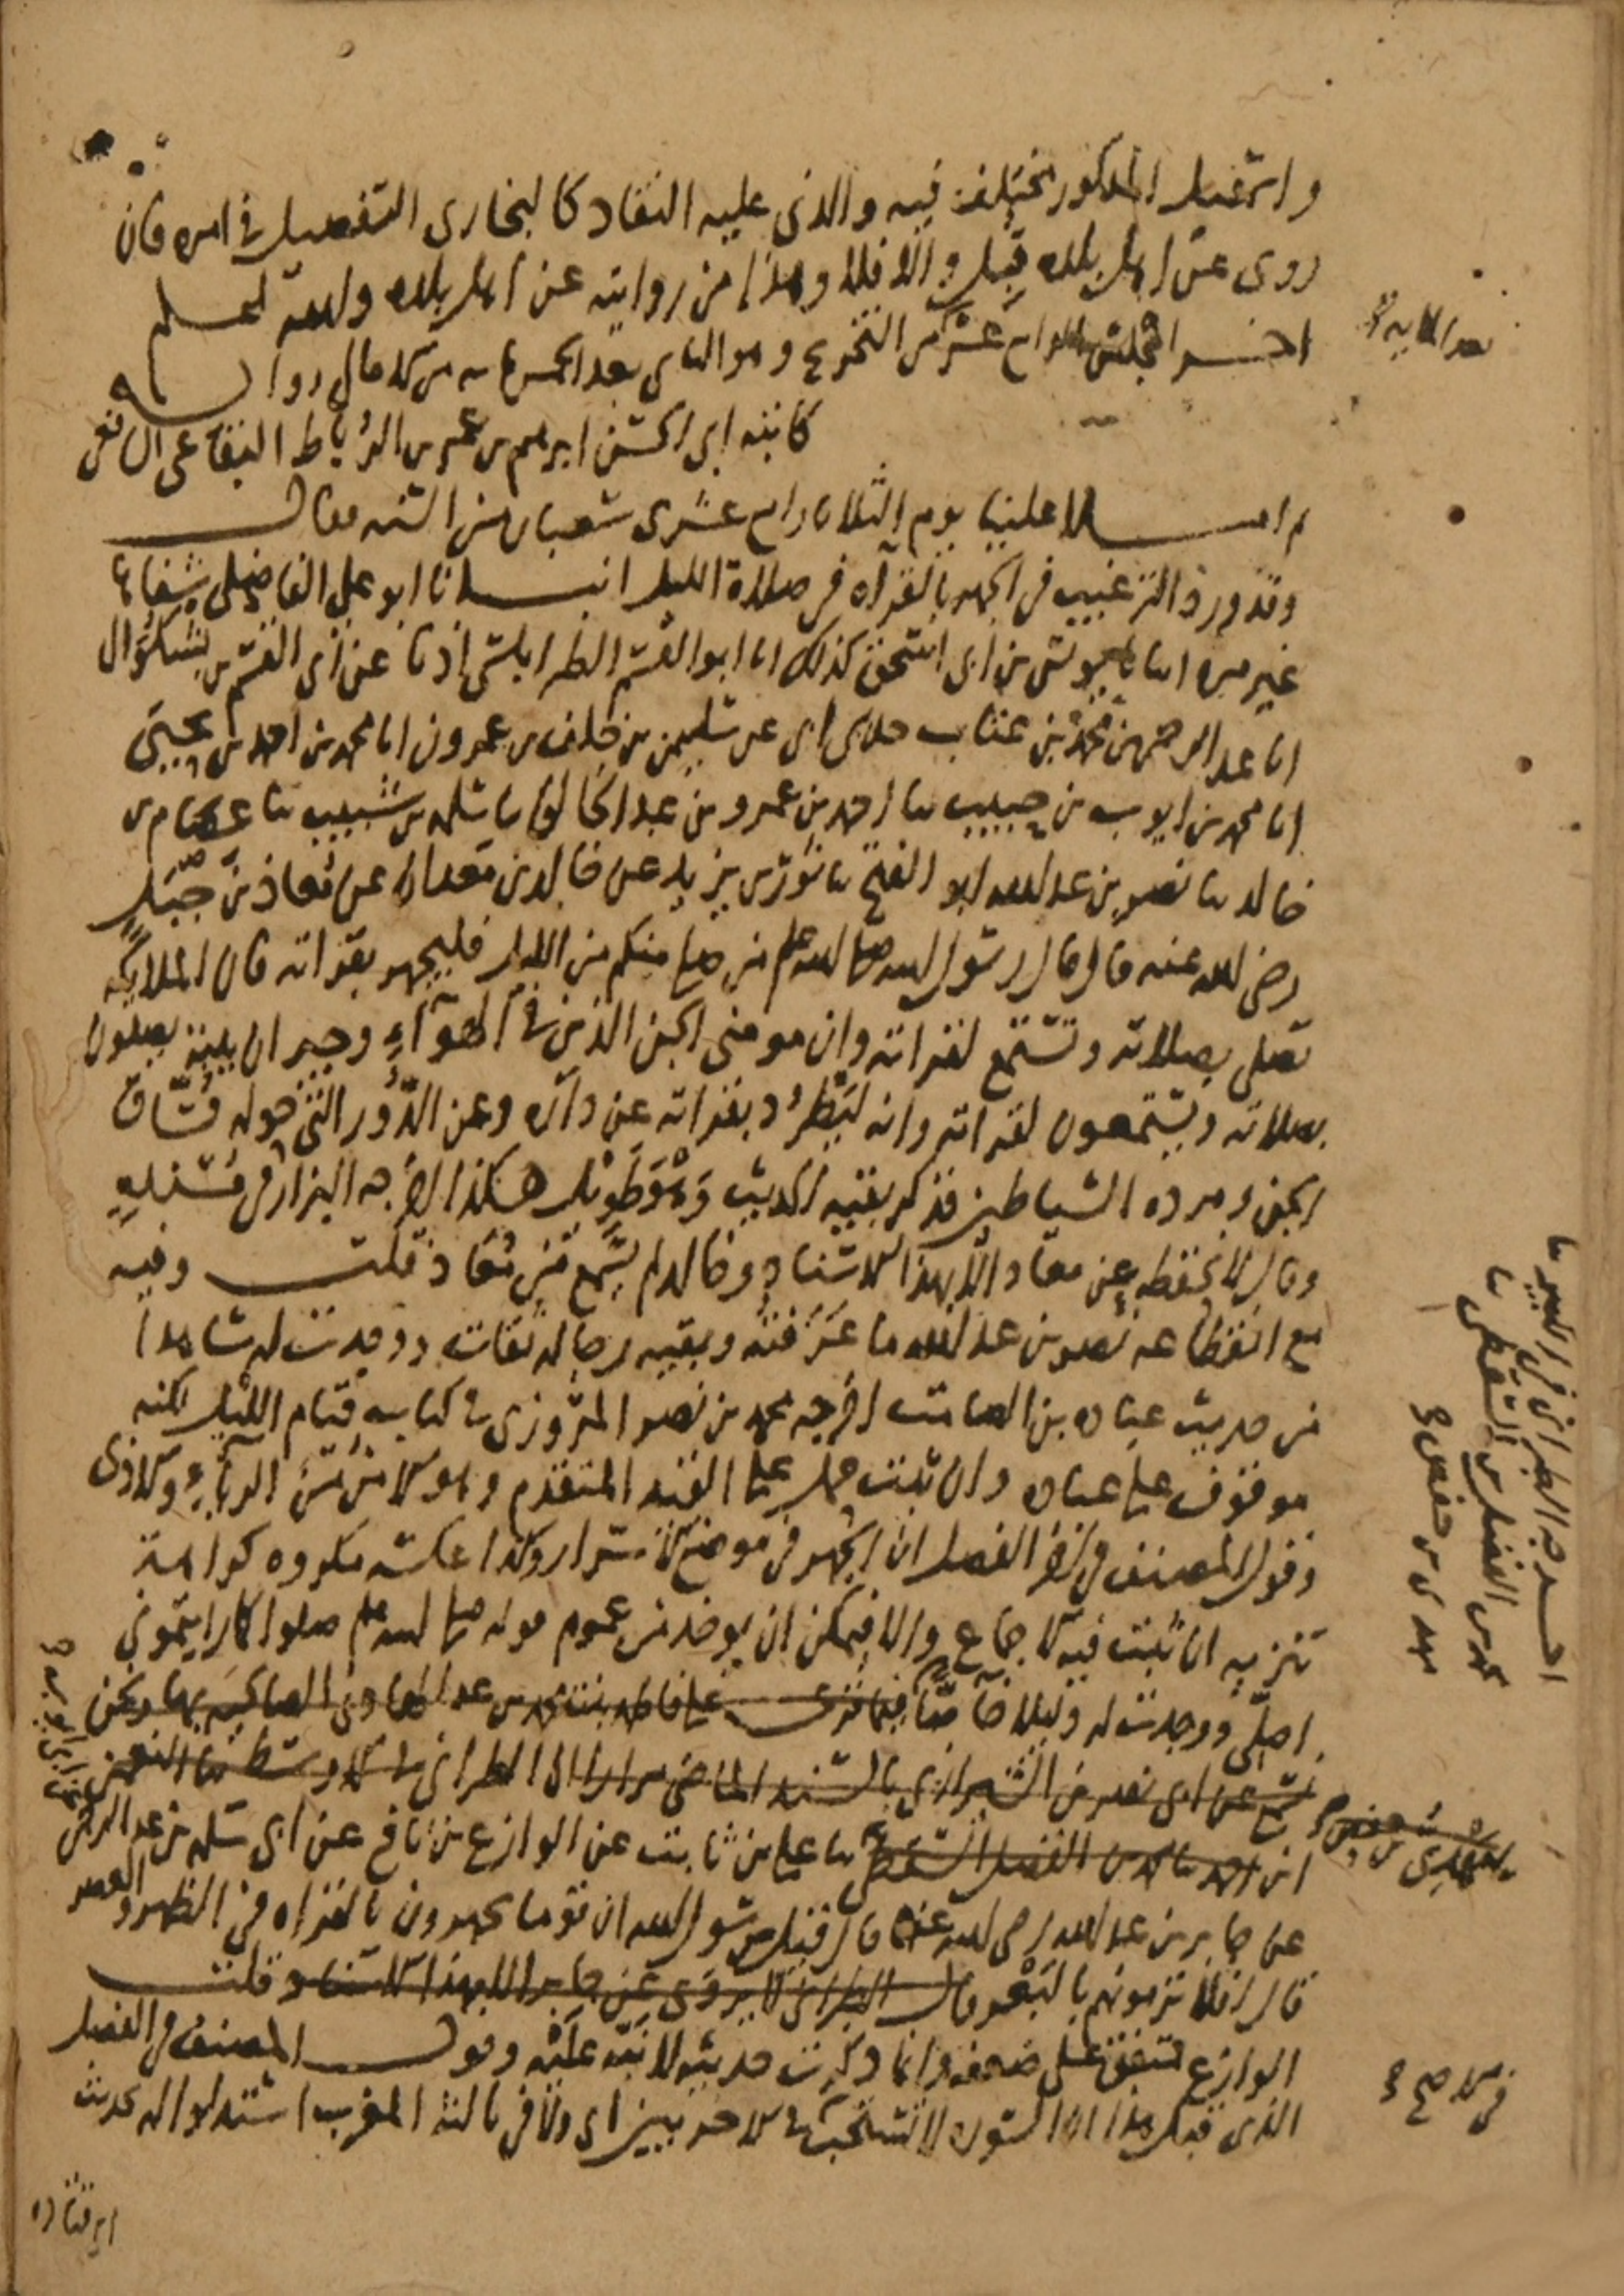 واسمعيل المذكور مختلف فيه والذى عليه النقاد كالبخارى التفصيل فى امره فان
روى عن اهل بلده قبل والا فلا وهذا من روايته عن اهل بلده والله اعلم
اخر المجلس الرابع عشر من التخريج وهو الثامن بعد الخمسمايه من كل مالى روايه
بعد المايه
كاتبه ابى الحسن ابرهيم بن عمر بن الرباط البقاعى الشافعى
ثم املا علينا يوم الثلاثا رابع عشرى شعبان من السنه فقال
وقد ورد الترغيب فى الجهر بالقرآه فى صلاة الليل انبانا ابو على الفاضلى شفاها
غير مره انبانا يونس بن ابى اسحق كذلك انا ابو القسم الطرابلسى اذنا عن ابى القسم بن بشكوال
انا عبد الرحمن بن محمد بن عتاب حدثنى ابى عن سليمن بن خلف بن عمرون انا محمد بن احمد بن يحيى
انا محمد بن ايوب بن حبيب ثنا احمد بن عمرو بن عبد الخالق ثنا سلمه بن شبيب ثنا عصام بن
خالد ثنا نصر بن عبد الله ابو الفتح ثنا ثور بن يزيد عن خالد بن معدان عن معاذ بن جبل
رضى الله عنه قال قال رسول الله صلى الله عليه وسلم من صلى منكم من الليل فليجهر بقراته فان الملايكه
تصلى بصلاته وتستمع لقراته وان مومنى الجن الذين فى الهوآء وجيران بيته يصلون
بصلاته ويستمعون لقراته وانه ليطرد بقراته عن داره وعن الدور التى حوله فساق
الجن ومرده الشياطين فذكر بقيه الحديث وهو طويل هكذا اخرجه البزار فى مسنده
وقال لا نحفظه عن معاذ الا بهذا الاسناد وخالد لم يسمع من معاذ قلت وفيه
مع انقطاعه نصر بن عبد الله ما عرفته وبقيه رجاله ثقات ووجدت له شاهدا
من حديث عباده بن الصامت اخرجه محمد بن نصر المروزى فى كتابه قيام الليل لكنه
موقوف على عباده وان ثبت حمل على القيد المتقدم وهو الامن من الريآء والاذى
وقول المصنف فى اخر الفصل ان الجهر فى موضع الاسرار وكذا عكسه مكروه كراهية
تنزيه ان ثبت فيه الاجماع والا فيمكن ان يوخذ من عموم قوله صلى الله عليه وسلم صلوا كما رايتمونى
اصلى ووجدت له دليلا خاصا فيما قرى على فاطمه بنت محمد بن عبد الهادى الصالحيه بها ونحن
نسمع عن ابى نصر بن الشيرازى بالسند الماضى مرارا الى الطبرانى فى الاوسط ثنا النعمن
ابن احمد ثنا محمد بن الفضل السقطى ثنا على بن ثابت عن الوازع بن نافع عن ابى سلمه بن عبد الرحمن
عن جابر بن عبد الله رضى الله عنه قال قيل يرسول الله ان قوما يجهرون بالقراه فى الظهر والعصر
قال افلا ترمونهم بالبعر قال الطبرانى لا يروى عن جابر الا بهذا الاسناد قلت
الوازع متفق على ضعفه وانما ذكرت حديثه لانبه عليه وقول المصنف فى الفصل
الذى قبل هذا ان السوره لا تستحب فى الاخريين اى ولا فى ثالثة المغرب استدلوا له بحديث
فى الاصح
اخرجه الطبرانى فى الكبير ثنا
محمد بن الفضل السقطى ثنا
مهدى بن حفص
ابى قتاده